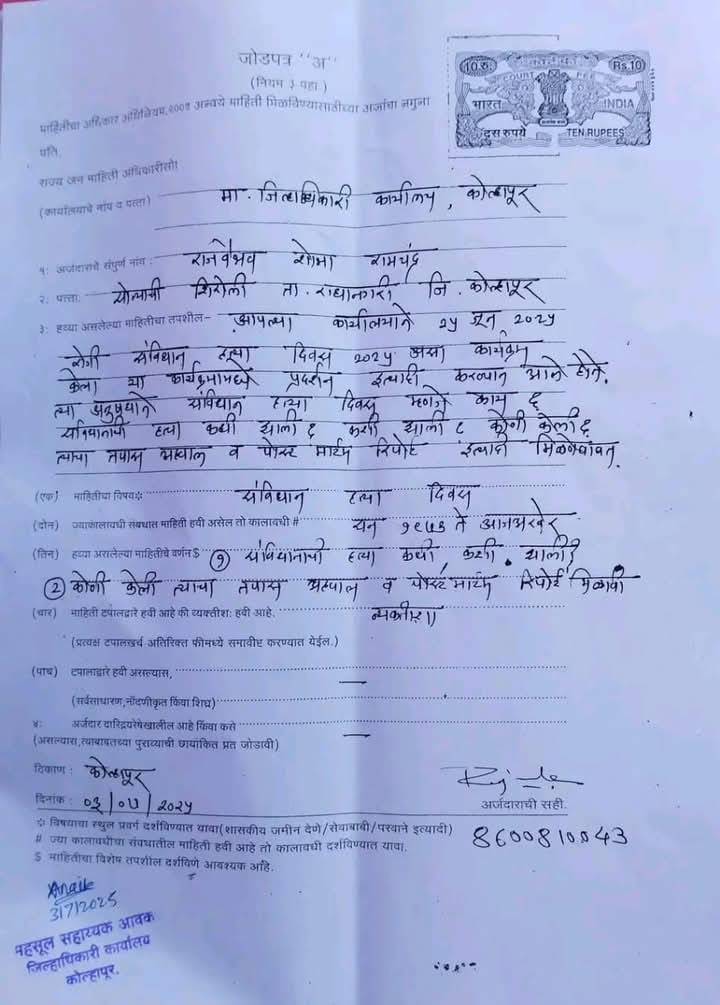 जोडपत्र "अ"
(नियम ३ पहा)
१० रु. Rs.10
COURT FEE
भारत INDIA
दस रुपये TEN RUPEES
माहितीचा अधिकार अधिनियम,२००५ अन्वये माहिती मिळविण्यासाठीच्या अर्जाचा नमुना
प्रति,
राज्य जन माहिती अधिकारीसो।
(कार्यालयाचे नांव व पत्ता) मा. जिल्हाधिकारी कार्यालय, कोल्हापूर
१: अर्जदाराचे संपुर्ण नांव : राजवैभव शोभा रामचंद्र
२. पत्ता: शिरोली ता. राधानगरी जि. कोल्हापूर
३: हव्या असलेल्या माहितीचा तपशील– आपल्या कार्यालयाने २५ जून २०२५
रोजी संविधान हत्या दिवस २०२५ असा कार्यक्रम
केला या कार्यक्रमामध्ये प्रदर्शन इत्यादी करण्यात आले होते.
त्या अनुषंगाने संविधान हत्या दिवस म्हणजे काय ?
संविधानाची हत्या कधी झाली ? कशी झाली ? कोणी केली ?
त्याचा तपास अहवाल व पोस्ट मार्टम रिपोर्ट इत्यादी मिळणेबाबत.
(एक) माहितीचा विषय※ संविधान हत्या दिवस
(दोन) ज्याकालावधी संबधात माहिती हवी असेल तो कालावधी # सन ते आजअखेर
(तिन) हव्या असलेल्या माहितीचे वर्णन $ ① संविधानाची हत्या कधी कशी झाली ?
② कोणी केली त्याचा तपास अहवाल व पोस्टमार्टम रिपोर्ट मिळावी
(चार) माहिती टपालद्वारे हवी आहे की व्यक्तीश: हवी आहे. व्यक्तीशः
(प्रत्यक्ष टपालखर्च अतिरिक्त फीमध्ये समाविष्ट करण्यात येईल.)
(पाच) टपालाद्वारे हवी असल्यास, —
(सर्वसाधारण,नोंदणीकृत किंवा शिघ्र)
४: अर्जदार दारिद्रयरेषेखालील आहे किंवा कसे
(असल्यास,त्याबाबतच्या पुराव्याची छायांकित प्रत जोडावी) —
ठिकाण : कोल्हापूर
दिनांक : ०३/०७/२०२५ अर्जदाराची सही.
※ विषयाचा स्थुल प्रवर्ग दर्शविण्यात यावा(शासकीय जमीन देणे/सेवाबाबी/परवाने इत्यादी)
# ज्या कालावधीचा संबधातील माहिती हवी आहे तो कालावधी दर्शविण्यात यावा.
$ माहितीचा विशेष तपशील दर्शविणे आवश्यक आहि.
8600810043
3/7/2025
महसूल सहाय्यक आवक
जिल्हाधिकारी कार्यालय
कोल्हापूर.